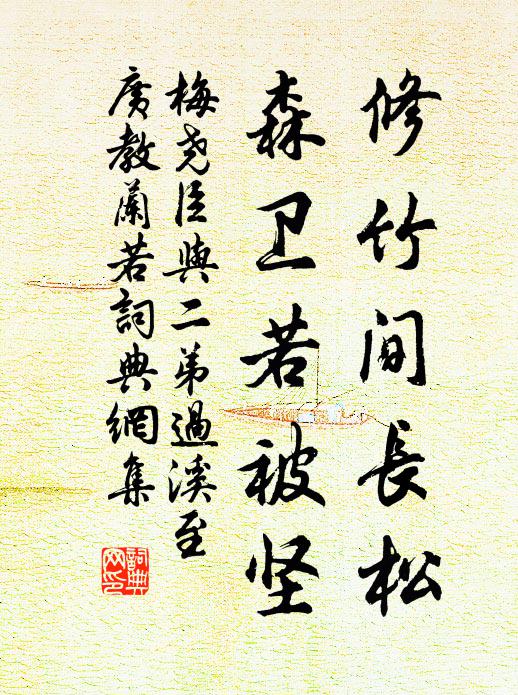 修竹间長松
森卫若被坚
梅尧臣與二弟過溪至
廣教蘭若詞典網集
詞典
网印